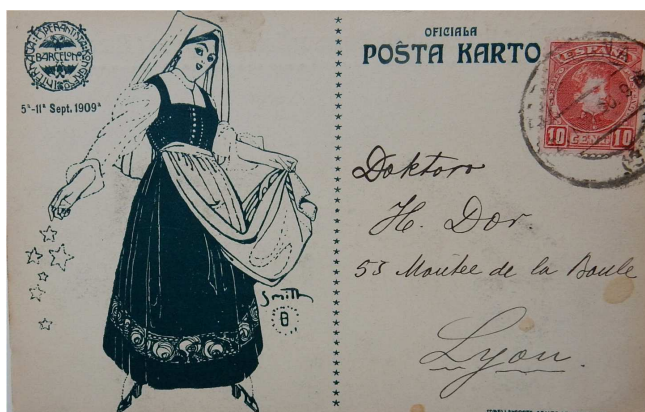 BARCELONA
5ª-11ª Sept. 1909ª
Smith
B
OFICIALA
POŜTA KARTO
ESPAÑA
10 CENT. 10
Doktoro
H. Dor.
53 Montée de la Boule
Lyon.